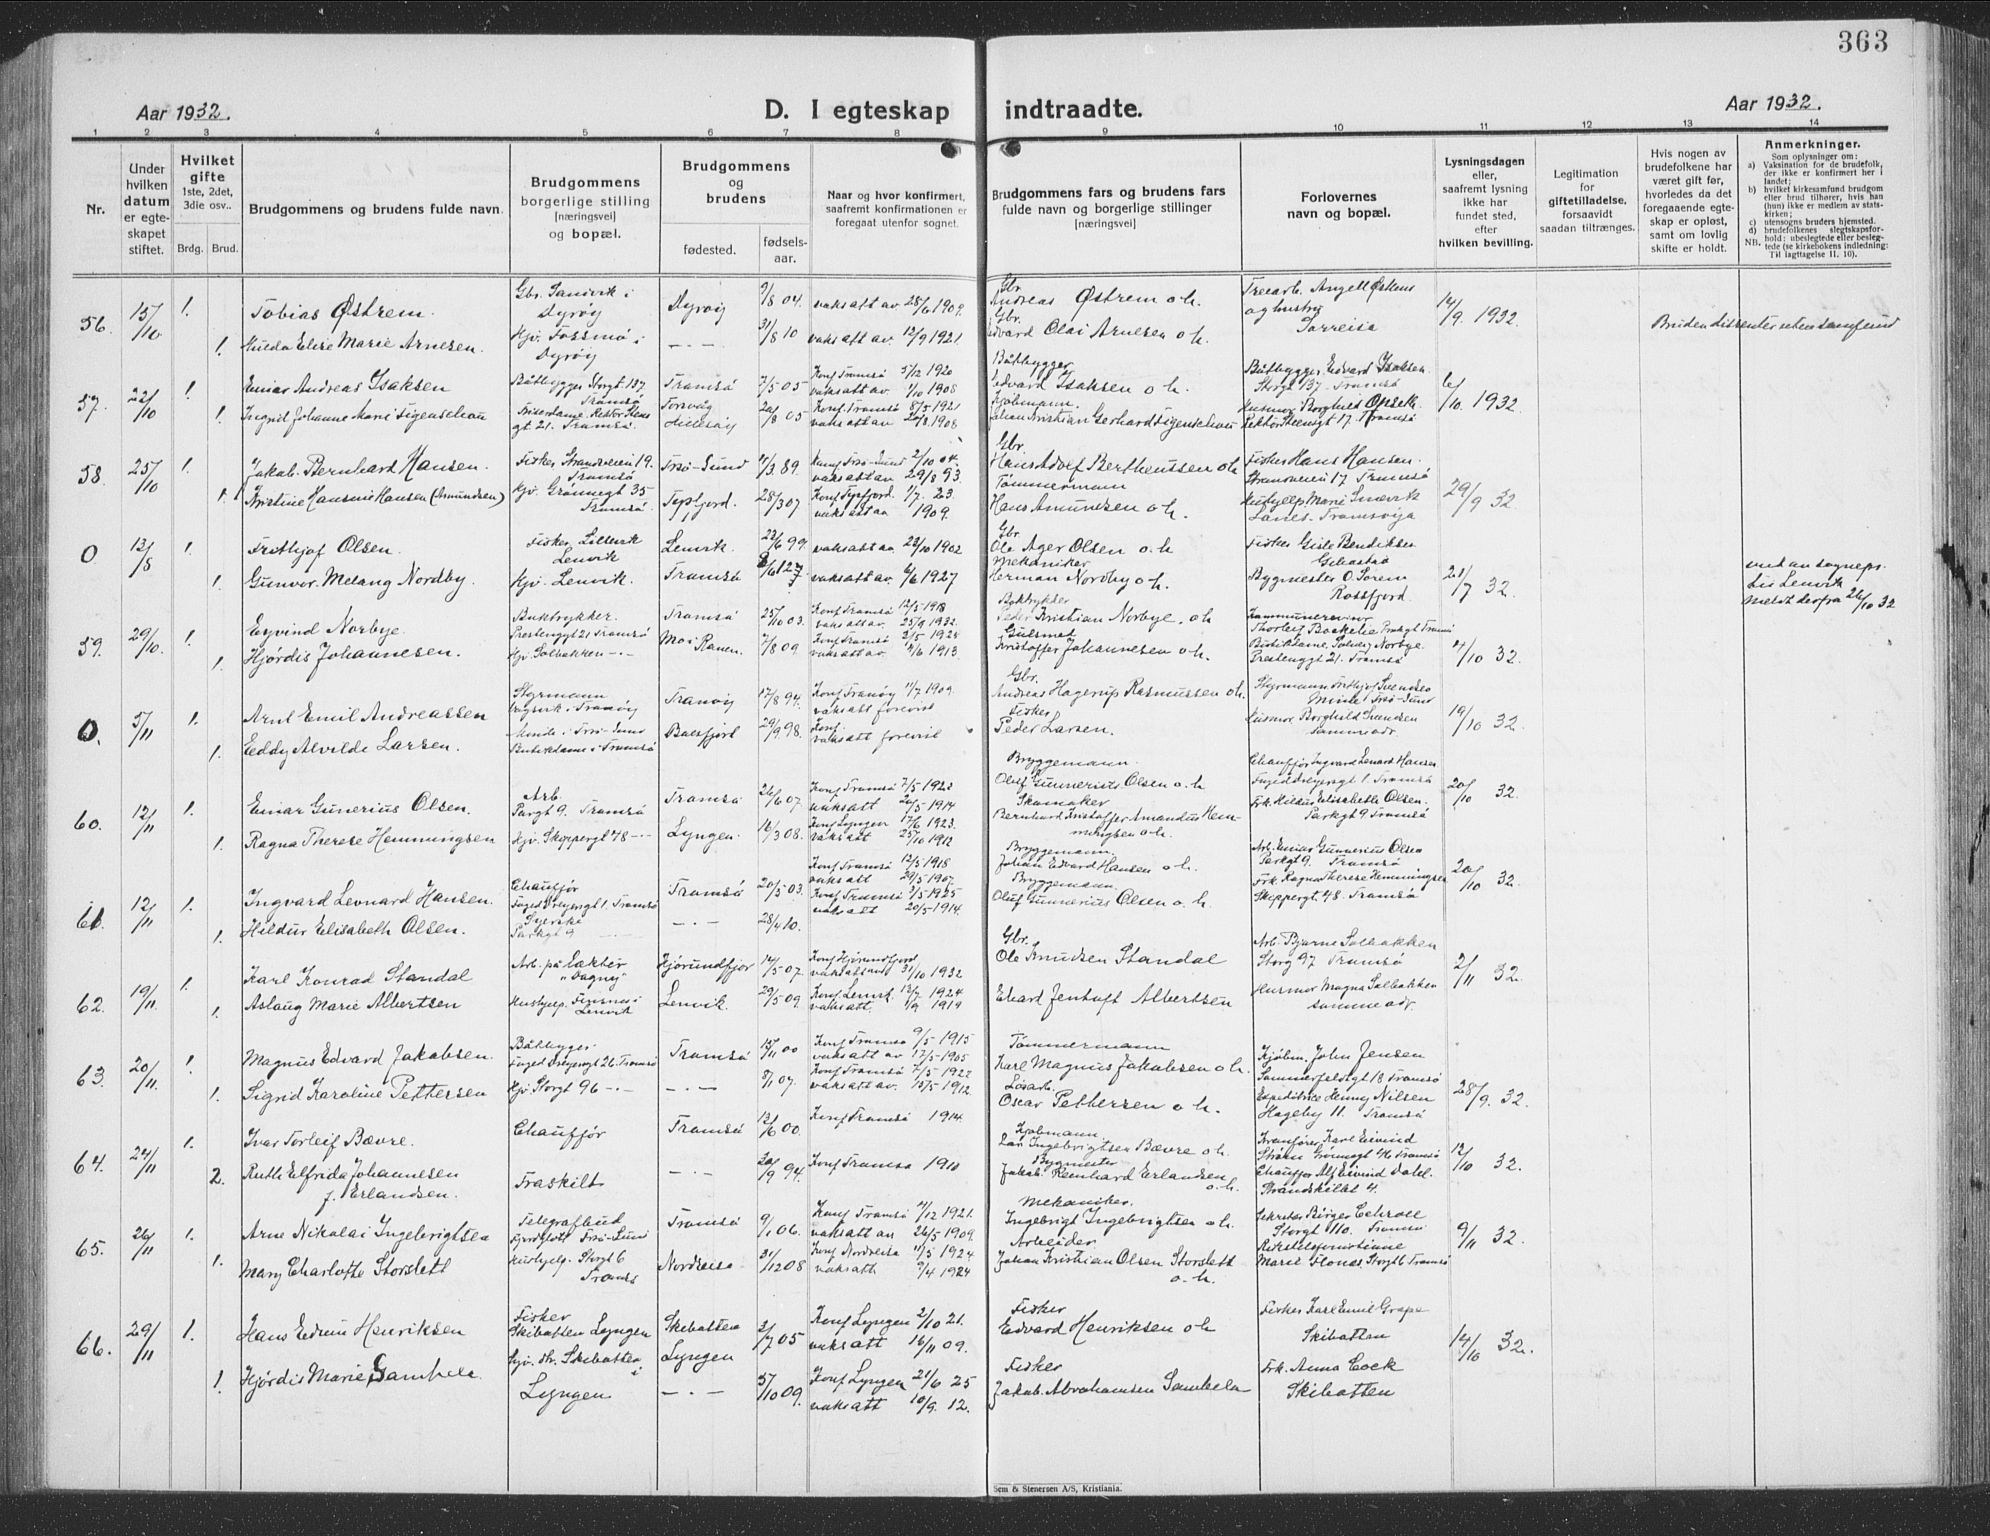 363
Aar 1932.
D. I egteskap indtraadte.
Aar 1932.
1 2 3 4 5 6 7 8 9 10 11 12 13 14
Nr.
Under hvilken datum er egteskapet stiftet.
Hvilket gifte 1ste, 2det, 3die osv..
Brdg. Brud.
Brudgommens og brudens fulde navn.
Brudgommens borgerlige stilling [næringsvei] og bopæl.
Brudgommens og brudens
fødested.
fødsels-aar.
Naar og hvor konfirmert, saafremt konfirmationen er foregaat utenfor sognet.
Brudgommens fars og brudens fars fulde navn og borgerlige stillinger [næringsvei]
Forlovernes navn og bopæl.
Lysningsdagen eller, saafremt lysning ikke har fundet sted, efter hvilken bevilling.
Legitimation for giftetilladelse, forsaavidt saadan tiltrænges.
Hvis nogen av brudefolkene har været gift før, hvorledes da det foregaaende egteskap er opløst, samt om lovlig skifte er holdt.
Anmerkninger.
Som oplysninger om:
a) Vaksination for de brudefolk, der ikke er konfirmert her i landet;
b) hvilket kirkesamfund brudgom eller brud tilhører, hvis han (hun) ikke er medlem av statskirken;
c) utensogns bruders hjemsted.
d) brudefolkenes slegtskapsforhold: ubeslegtede eller beslegtede (se kirkebokens indledning:
NB. Til iagttagelse II. 10).
56. 15/10 1. Tobias Østrem. Gbr. Sandvik i Dyrøy Dyrøy 9/8 04. vaksatt av 28/6 1909. Gbr. Andreas Østrem o.h. Trearb. Angell Øskens og hustru Sørreisa 14/9. 1932.
1. Hulda Elise Marie Arnesen. Hjv. Fossmo i Dyrøy —.— 31/8 10 vaksatt av 12/9 1921. Gbr. Edvard Olai Arnesen o.h. Bruden dissenter uten samfund
57. 22/10 1. Einar Andreas Isaksen Båtbygger Storgt 137 Tromsø Tromsø 7/5 05 Konf Tromsø 5/12 1920 vaksatt av 1/10 1908 Båtbygger Edvard Isaksen o.h. Båtbygger Edvard Isaksen Storgt 137 Tromsø 6/10. 1932
1. Ingrid Johanne Marie Figenschou gt 21. Tromsø. Torsvåg Hillesøy 20/8 05 Konf. Tromsø 8/5 1921 vaksatt av 1908 Kjøbmann. Johan Kristian Gerhard Figenschou Husmor Borghild 17. Tromsø
58. 25/10 1. Jakob Bernhard Hansen. Fisker Strandveien 19. Tromsø Tr.sø-Sund 11/3 89 Konf Tr.sø-Sund 2/10 04. vaksatt av 29/8 93. Gbr. Hans Adolf Bertheussen o.h. Fisker Hans Hansen. Strandveien 17 Tromsø 29/9 32
1. Kristine Hansine Hansen (Osmundsen) Hjv. Grønnegt 35 Tromsø. Tepfjord. 28/3 07 Konf. Tepfjord. 1/7. 23. vaksatt av 1909. Tømmermann Hans Amundsen o.h. Hushjelp. Marie Snevik Lanes. Tromsøya
0 13/8 1. Frithjof Olsen. Fisker Lillevik Lenvik Lenvik. 22/6 99 vaksatt av 28/10 1902 Gbr. Ole Ager Olsen o.h. Fisker Gisle Bendiksen Gibostad 21/7 32.
1. Gunvor Melang Nordby. Hjv. Lenvik. Tromsø vaksatt av 6/6 1927 Mekaniker Herman Nordby o.h. Bygmester O. Sørem Rossfjord. viet av sogneprs. tis Lenvik Meldt derfra 26/10 32
59. 29/10. 1. Eyvind Norbye. Boktrykker. Prestenggt 21 Tromsø Tromsø 25/10 03. Konf Tromsø 12/5 1918 vaksatt av 25/9 1932. Boktrykker Peder Kristian Norbye. o.h. Kommunerevisor Thorleif Boekelie 14/10 32.
1. Hjørdis Johannesen. Hjv. Solbakken —.— Mo i Ranen. 7/8 09. Konf Tromsø 3/5 1924 vaksatt av 1913. Gulsmed Kristoffer Johannesen o.h. Butikdame Solveig Norbye Prestenggt 21. Tromsø
0. 5/11 1. Arnt Emil Andreassen Styrmann i Tranøy Tranøy 17/8 94. Konf Tranøy 11/7 1909. vaksatt forevist Gbr. Andreas Hagerup Rasmussen o.h. Styrmann Frithjof Svendsen Minde i Trsø-Sund 19/10 32.
1. Eddy Alvilde Larsen. Minde i Trsø-Sund Butikdame i Tromsø Balsfjord 29/9. 98. Konf. vaksatt forevist Fisker Peder Larsen. Husmor Borghild Svendsen samme adr.
60. 12/11 1. Einar Gunerius Olsen. Arb. Parkgt 9. Tromsø Tromsø 26/6 07. Konf Tromsø 7/5 1922 vaksatt 20/5 1914 Bryggemann. Oluf Gunnerius Olsen o.h. Chauffør Ingvard Lenard Hansen Foged Dreyersgt 1. Tromsø 20/10 32.
1. Ragna Therese Hemmingsen Hjv. Skippergt 48 —.— Lyngen. 16/3 08. Konf Lyngen 17/6 1923. vaksatt 25/10 1912 Skomaker Bernhard Kristoffer Amandus Hemmingsen o.h. Frk. Hildur Elisabeth Olsen. Parkgt 9 Tromsø
61. 12/11 1. Ingvard Leonard Hansen. Chauffør Foged Dreyersgt 1. Tromsø Tromsø 20/5 03. Konf Tromsø 12/5 1918 vaksatt 29/5 1907 Bryggemann. Johan Edvard Hansen o.h. Arb. Einar Gunnerius Olsen Parkgt 9. Tromsø 20/10 32.
1. Hildur Elisabeth Olsen. Syerske Parkgt 9 —.— 28/4 10. Konf Tromsø 3/5 1925 vaksatt 20/5 1914. Bryggemann. Oluf Gunnerius Olsen o.h. Frk. Ragna Therese Hemmingsen Skippergt 48. Tromsø
62. 19/11. 1. Karl Konrad Standal Arb. på Lekter "Dagny" Hjørundfjor 14/5 07. Konf Hjørundfjord vaksatt av 31/10 1932 Gbr. Ole Knudsen Standal Arb. Bjarne Solbakken Storg 97 Tromsø 2/11 32.
1. Aslaug Marie Albertsen Hushjelp. Finsnes i Lenvik Lenvik. 29/5 09. Konf Lenvik 13/7 1924 vaksatt. 1/9 1914 Edvard Jentoft Albertsen Husmor Magna Solbakken samme adr.
63. 20/11. 1. Magnus Edvard Jakobsen. Båtbygger Foged Dreyersgt 26. Tromsø Tromsø 15/11 00 Konf Tromsø 9/5 1915 vaksatt av 17/5 1905 Tømmermann Karl Magnus Jakobsen o.h. Kjøbm. John Jensen Sommerfeldtsgt 18 Tromsø 28/9. 32.
1. Sigrid Karoline Pettersen Hjv. Storgt 96 —.— —.— 8/11 07. Konf Tromsø 7/5 1922 vaksatt av. 15/5 1912 Løsarb. Oscar Pettersen o.h. Expeditrice Henny Nilsen Hageby 11. Tromsø
64. 24/11 1. Ivar Torleif Bævre. Chauffør Tromsø 12/6 00. Konf Tromsø 1914. Kjøbmann. Lars Ingebrigtsen Bævre o.h. Kranfører Karl Eivind Strøm Grønnegt 46 Tromsø 12/10 32.
2. Ruth Elfrida Johannesen f. Erlandsen. Fraskilt —.— 20/9 94. Konf Tromsø 1910 Bygmester Jakob Reinhard Erlandsen o.h. Chauffør Alf Eivind Dahl. Strandskillet 4.
65. 26/11 1. Arne Nikolai Ingebrigtsen Telegrafbud Trsø-Sund Tromsø 9/1 06. Konf Tromsø 4/12 1921. vaksatt av 26/5 1909. Mekaniker. Ingebrigt Ingebrigtsen o.h. Sekretær Birger Cehroll Storgt 110. Tromsø 9/11 32.
1. Mary Charlotte Storslett Hushjelp. Storgt 6 Tromsø Nordreisa 31/12 08 Konf Nordreisa 11/5 1924 vaksatt 9/4 1924 Arbeider. Johan Kristian Olsen Storslett o.h. Rikstelefonistinne Marie Flones. Storgt 6 Tromsø
66. 29/11 1. Hans Edvin Henriksen Fisker Skibotten Lyngen Skibotten Lyngen 3/7 05 Konf Lyngen 2/10 21. vaksatt 16/11 09. Fisker Edvard Henriksen o.h. Fisker Karl Emil Grape Skibotten 14/10 32.
1. Hjørdis Marie Sambela. Hjv. dtr. Skibotten i Lyngen —.— 5/10 09. Konf Lyngen 21/6 25 vaksatt 10/9. 12. Fisker Jakob Abrahamsen Sambela Frk. Anna Cock Skibotten
Sem & Stenersen A/S, Kristiania.